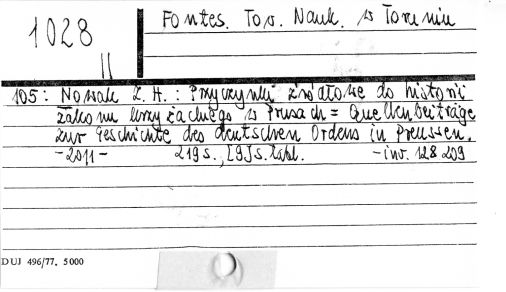 1028
Fontes. Tow. Nauk. w Toruniu
105: Nowak Z. H.: Przyczynki źródłowe do historii
zakonu krzyżackiego w Prusach = Quellenbeiträge
zur Geschichte des deutschen Ordens in Preussen.
-2011- 219 s., [9] s. tabl. -inv. 128 209
DUJ 496/77. 5000